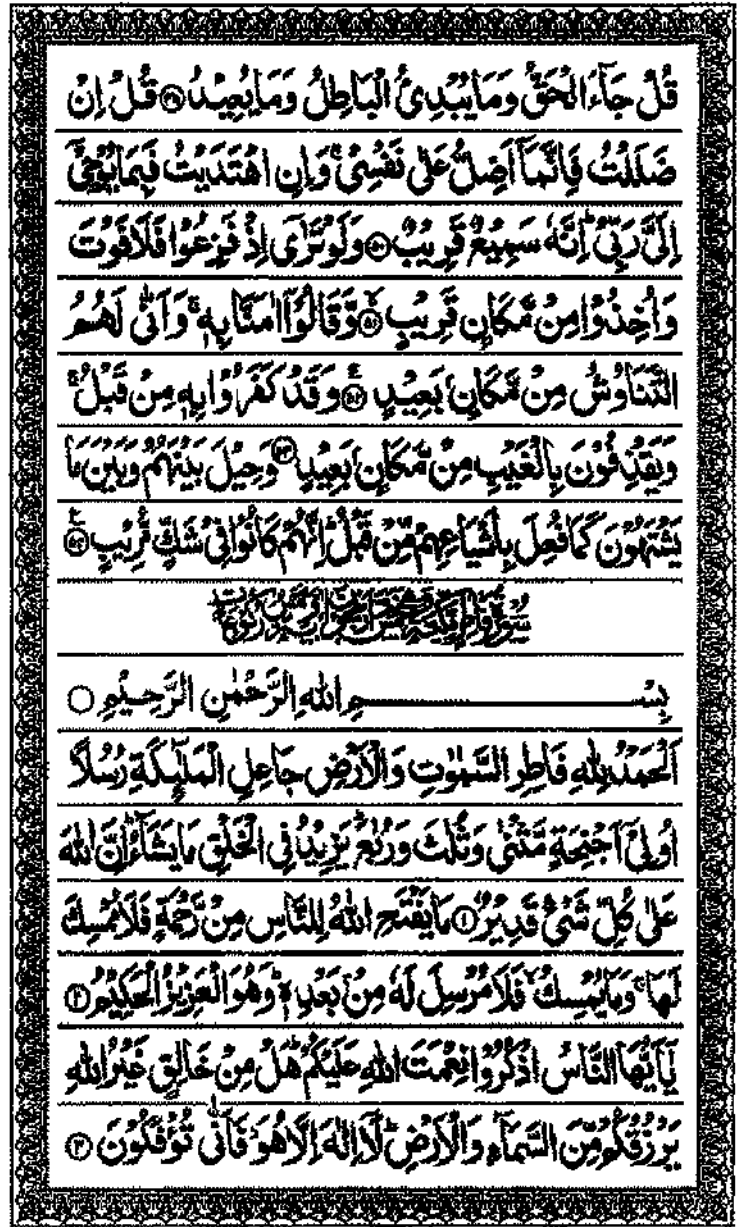 قُلْ جَآءَ الْحَقُّ وَمَا يُبْدِئُ الْبَاطِلُ وَمَا يُعِيْدُ ﴿۴۹﴾ قُلْ اِنْ
ضَلَلْتُ فَاِنَّمَآ اَضِلُّ عَلٰى نَفْسِيْ ۚ وَاِنِ اهْتَدَيْتُ فَبِمَا يُوْحِيْٓ
اِلَيَّ رَبِّيْ ؕ اِنَّهٗ سَمِيْعٌ قَرِيْبٌ ﴿۵۰﴾ وَلَوْ تَرٰٓى اِذْ فَزِعُوْا فَلَا فَوْتَ
وَاُخِذُوْا مِنْ مَّكَانٍ قَرِيْبٍ ﴿۵۱﴾ وَّقَالُوْٓا اٰمَنَّا بِهٖ ۚ وَاَنّٰى لَهُمُ
التَّنَاوُشُ مِنْ مَّكَانٍۭ بَعِيْدٍ ﴿۵۲﴾ وَّقَدْ كَفَرُوْا بِهٖ مِنْ قَبْلُ ۚ
وَيَقْذِفُوْنَ بِالْغَيْبِ مِنْ مَّكَانٍۭ بَعِيْدٍ ﴿۵۳﴾ وَحِيْلَ بَيْنَهُمْ وَبَيْنَ مَا
يَشْتَهُوْنَ كَمَا فُعِلَ بِاَشْيَاعِهِمْ مِّنْ قَبْلُ ؕ اِنَّهُمْ كَانُوْا فِيْ شَكٍّ مُّرِيْبٍ ﴿۵۴﴾
بِسْمِ اللّٰهِ الرَّحْمٰنِ الرَّحِيْمِ
اَلْحَمْدُ لِلّٰهِ فَاطِرِ السَّمٰوٰتِ وَالْاَرْضِ جَاعِلِ الْمَلٰٓئِكَةِ رُسُلًا
اُولِيْٓ اَجْنِحَةٍ مَّثْنٰى وَثُلٰثَ وَرُبٰعَ ؕ يَزِيْدُ فِي الْخَلْقِ مَا يَشَآءُ ؕ اِنَّ اللّٰهَ
عَلٰى كُلِّ شَيْءٍ قَدِيْرٌ ﴿۱﴾ مَا يَفْتَحِ اللّٰهُ لِلنَّاسِ مِنْ رَّحْمَةٍ فَلَا مُمْسِكَ
لَهَا ۚ وَمَا يُمْسِكْ ۙ فَلَا مُرْسِلَ لَهٗ مِنْۢ بَعْدِهٖ ؕ وَهُوَ الْعَزِيْزُ الْحَكِيْمُ ﴿۲﴾
يٰٓاَيُّهَا النَّاسُ اذْكُرُوْا نِعْمَتَ اللّٰهِ عَلَيْكُمْ ؕ هَلْ مِنْ خَالِقٍ غَيْرُ اللّٰهِ
يَرْزُقُكُمْ مِّنَ السَّمَآءِ وَالْاَرْضِ ؕ لَآ اِلٰهَ اِلَّا هُوَ ۖ فَاَنّٰى تُؤْفَكُوْنَ ﴿۳﴾